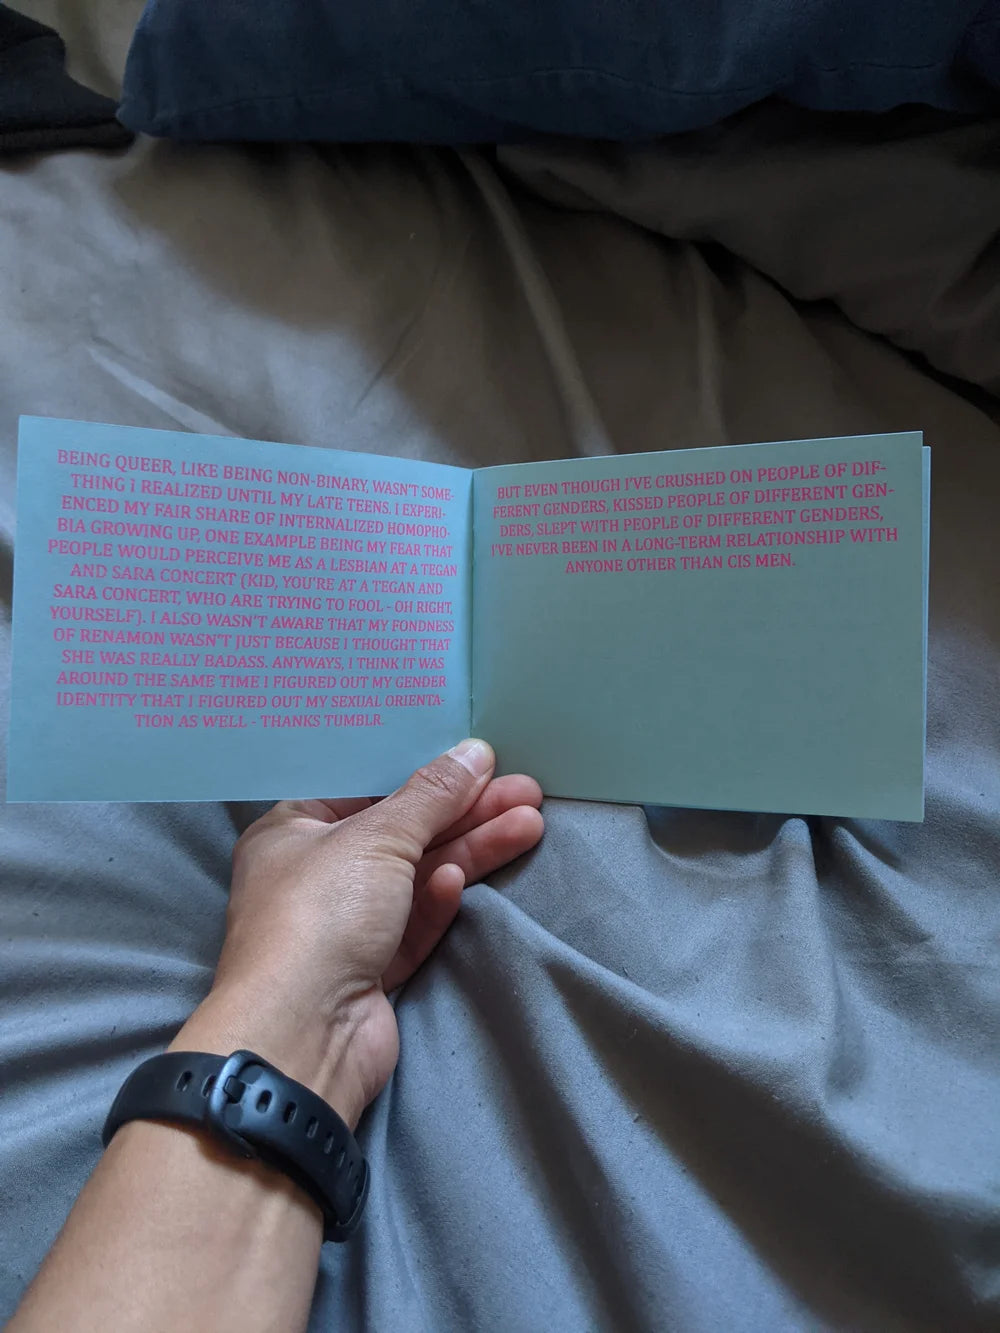 BEING QUEER, LIKE BEING NON-BINARY, WASN'T SOME-
THING I REALIZED UNTIL MY LATE TEENS. I EXPERI-
ENCED MY FAIR SHARE OF INTERNALIZED HOMOPHO-
BIA GROWING UP, ONE EXAMPLE BEING MY FEAR THAT
PEOPLE WOULD PERCEIVE ME AS A LESBIAN AT A TEGAN
AND SARA CONCERT (KID, YOU'RE AT A TEGAN AND
SARA CONCERT, WHO ARE TRYING TO FOOL - OH RIGHT,
YOURSELF). I ALSO WASN'T AWARE THAT MY FONDNESS
OF RENAMON WASN'T JUST BECAUSE I THOUGHT THAT
SHE WAS REALLY BADASS. ANYWAYS, I THINK IT WAS
AROUND THE SAME TIME I FIGURED OUT MY GENDER
IDENTITY THAT I FIGURED OUT MY SEXUAL ORIENTA-
TION AS WELL - THANKS TUMBLR.
BUT EVEN THOUGH I'VE CRUSHED ON PEOPLE OF DIF-
FERENT GENDERS, KISSED PEOPLE OF DIFFERENT GEN-
DERS, SLEPT WITH PEOPLE OF DIFFERENT GENDERS,
I'VE NEVER BEEN IN A LONG-TERM RELATIONSHIP WITH
ANYONE OTHER THAN CIS MEN.